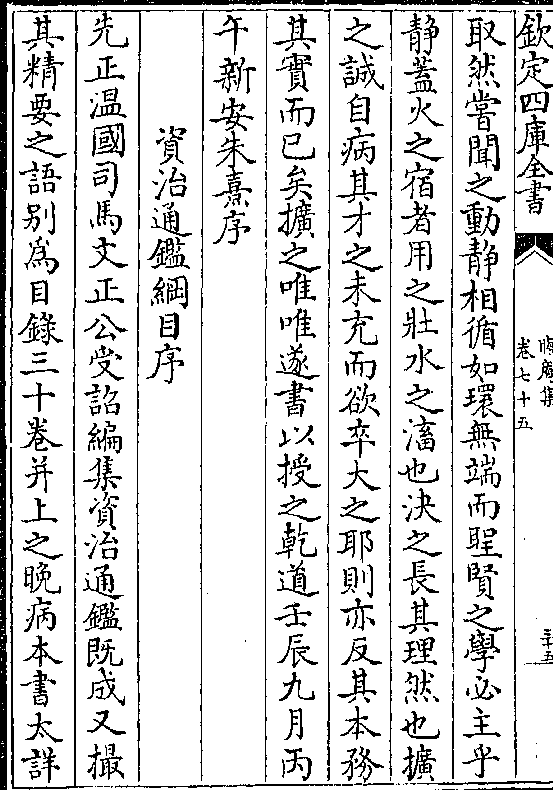 欽定四庫全書
晦庵集
卷七十五
三五
取然嘗聞之動静相循如環無端而聖賢之學必主乎
静蓋火之宿者用之壯水之滀也決之長其理然也擴
之誠自病其才之未充而欲卒大之耶則亦反其本務
其實而已矣擴之唯唯遂書以授之乾道壬辰九月丙
午新安朱熹序
資治通鑑綱目序
先正温國司馬文正公受詔編集資治通鑑既成又撮
其精要之語别為目錄三十卷并上之晚病本書太詳